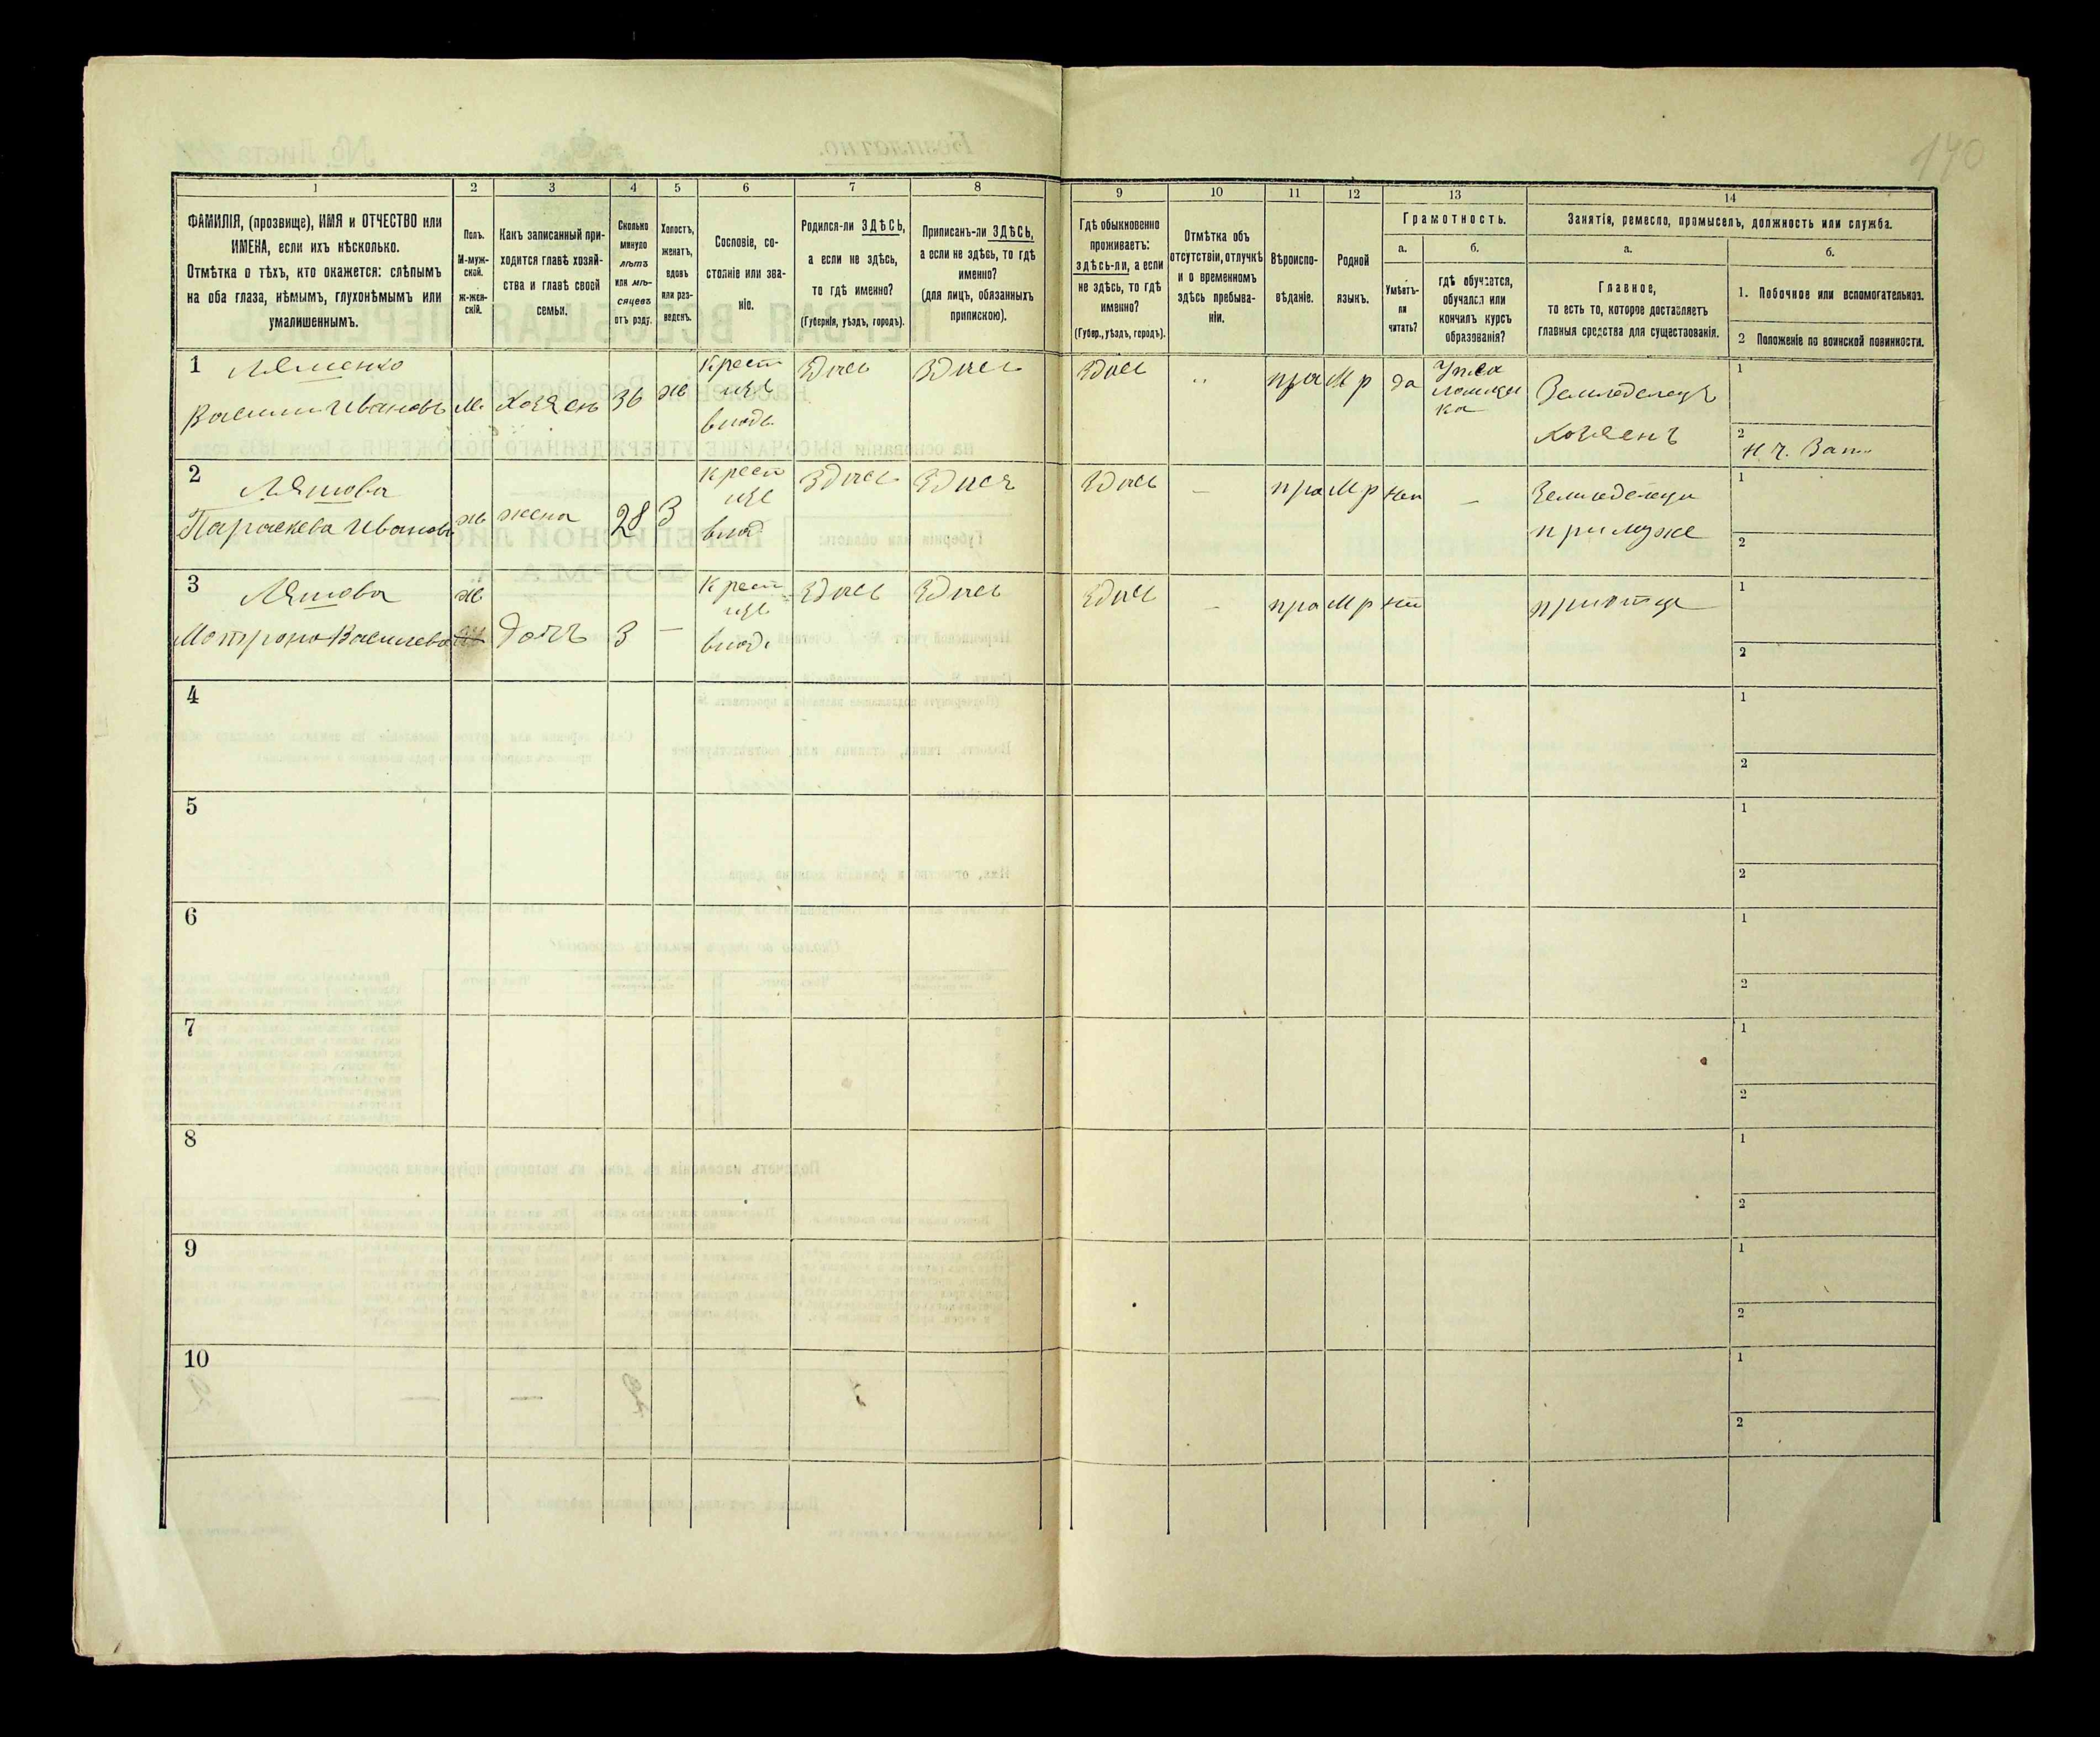 140
1
2
3
4
5
6
7
8
9
10
11
12
13
14
ФАМИЛІЯ, (прозвище), ИМЯ и ОТЧЕСТВО или
ИМЕНА, если ихъ нѣсколько.
Отмѣтка о тѣхъ, кто окажется: слѣпымъ
на оба глаза, нѣмымъ, глухонѣмымъ или
умалишеннымъ.
Полъ.
М-муж-
ской.
Ж-жен-
скій.
Какъ записанный при-
ходится главѣ хозяй-
ства и главѣ своей
семьи.
Сколько
минуло
лѣтъ
или мѣ-
сяцевъ
отъ роду.
Холостъ,
женатъ,
вдовъ
или раз-
веденъ.
Сословіе, со-
стояніе или зва-
ніе.
Родился-ли ЗДѢСЬ,
а если не здѣсь,
то гдѣ именно?
(Губернія, уѣздъ, городъ).
Приписанъ-ли ЗДѢСЬ,
а если не здѣсь, то гдѣ
именно?
(для лицъ, обязанныхъ
припискою).
Гдѣ обыкновенно
проживаетъ:
здѣсь-ли, а если
не здѣсь, то гдѣ
именно?
(Губер., уѣздъ, городъ).
Отмѣтка объ
отсутствіи, отлучкѣ
и о временномъ
здѣсь пребыва-
ніи.
Вѣроиспо-
вѣданіе.
Родной
языкъ.
Грамотность.
а.
б.
Умѣетъ-
ли
читать?
гдѣ обучается,
обучался или
кончилъ курсъ
образованія?
Занятія, ремесло, промыселъ, должность или служба.
а.
б.
Главное,
то есть то, которое доставляетъ
главныя средства для существованія.
1. Побочное или вспомогательное.
2 Положеніе по воинской повинности.
1
Ляшенко
Василий Ивановъ
м
Хозяен
36
ж
Крест
изъ
влад.
Здись
Здись
Здись
"
пра
М р
да
Землоделецъ
Хозяенъ
1
2
Н. Ч. Зап.
2
Ляшова
Параскева Иванов
ж
жена
28
З
Крест
изъ
влад
Здись
Здися
Здись
–
пра
М р
нет
–
Земледелеци
при муже
1
2
3
Ляшова
Мотрона Василева
ж
дочъ
3
–
Крест
изъ
влад.
Здись
Здись
Здись
–
пра
М р
нет
при отце
1
2
4
1
2
5
1
2
6
1
2
7
1
2
8
1
2
9
1
2
10
1
2